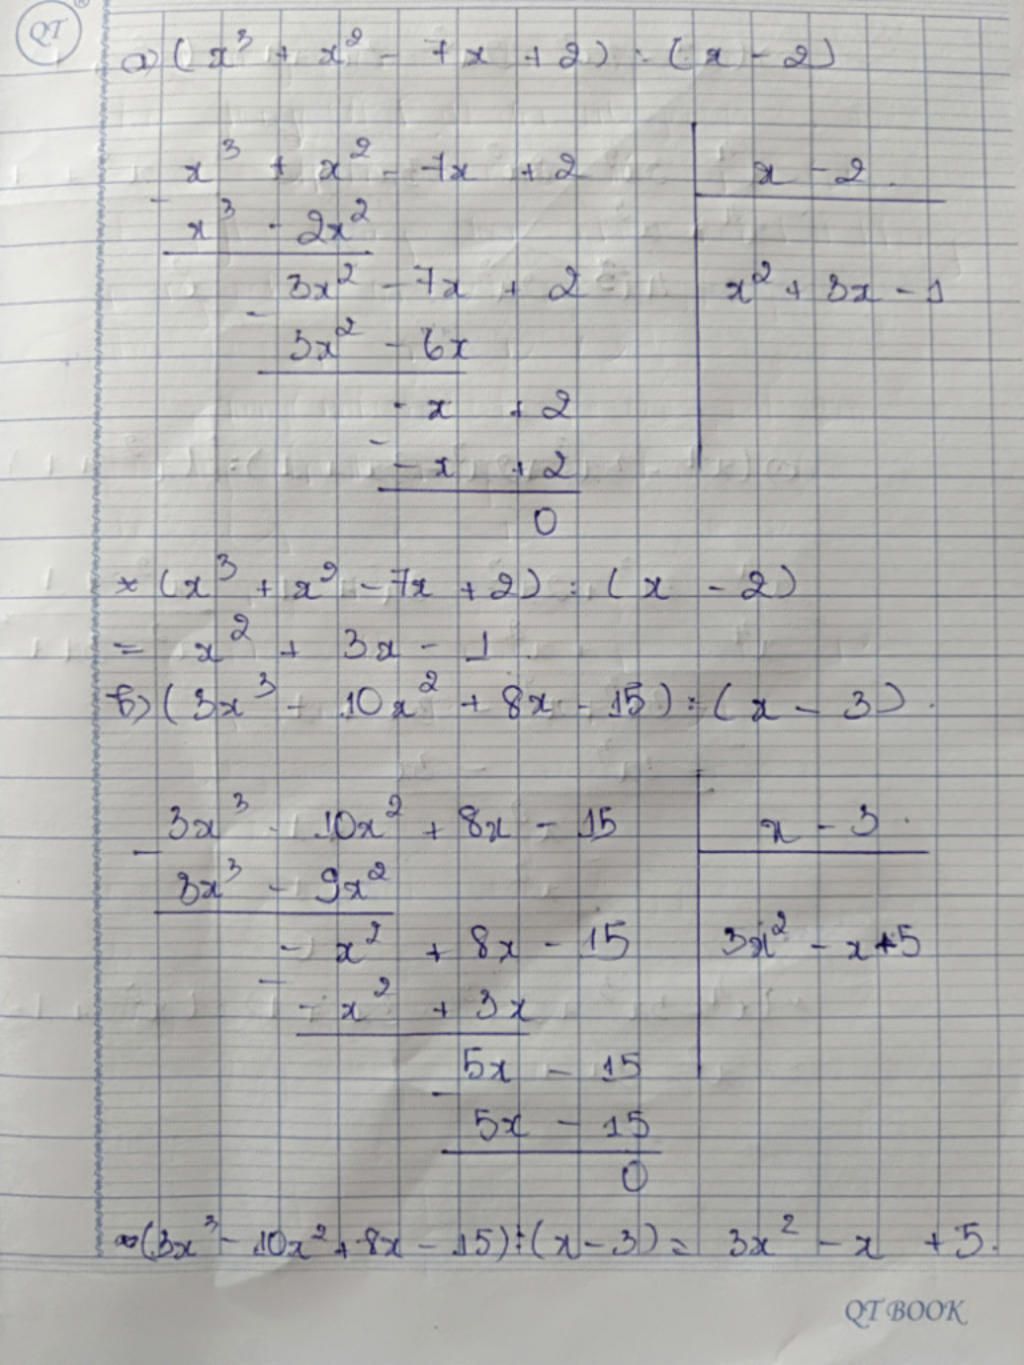 QT
a) (x³ + x² - 7x + 2) : (x - 2)
x³ + x² - 7x + 2 x - 2
- x³ - 2x²
3x² - 7x + 2 x² + 3x - 1
- 3x² - 6x
- x + 2
- - x + 2
0
* (x³ + x² - 7x + 2) : (x - 2)
= x² + 3x - 1
b) (3x³ - 10x² + 8x - 15) : (x - 3).
3x³ - 10x² + 8x - 15 x - 3
- 3x³ - 9x²
- x² + 8x - 15 3x² - x + 5
- - x² + 3x
5x - 15
- 5x - 15
0
(3x³ - 10x² + 8x - 15) : (x - 3) = 3x² - x + 5.
QT BOOK